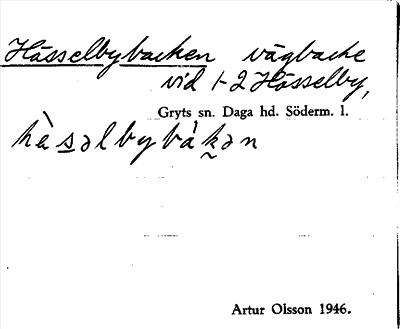 Hässelbybacken vägbacke
vid 1-2 Hässelby,
Gryts sn. Daga hd. Söderm. l.
hὰsəlbybákən
Artur Olsson 1946.